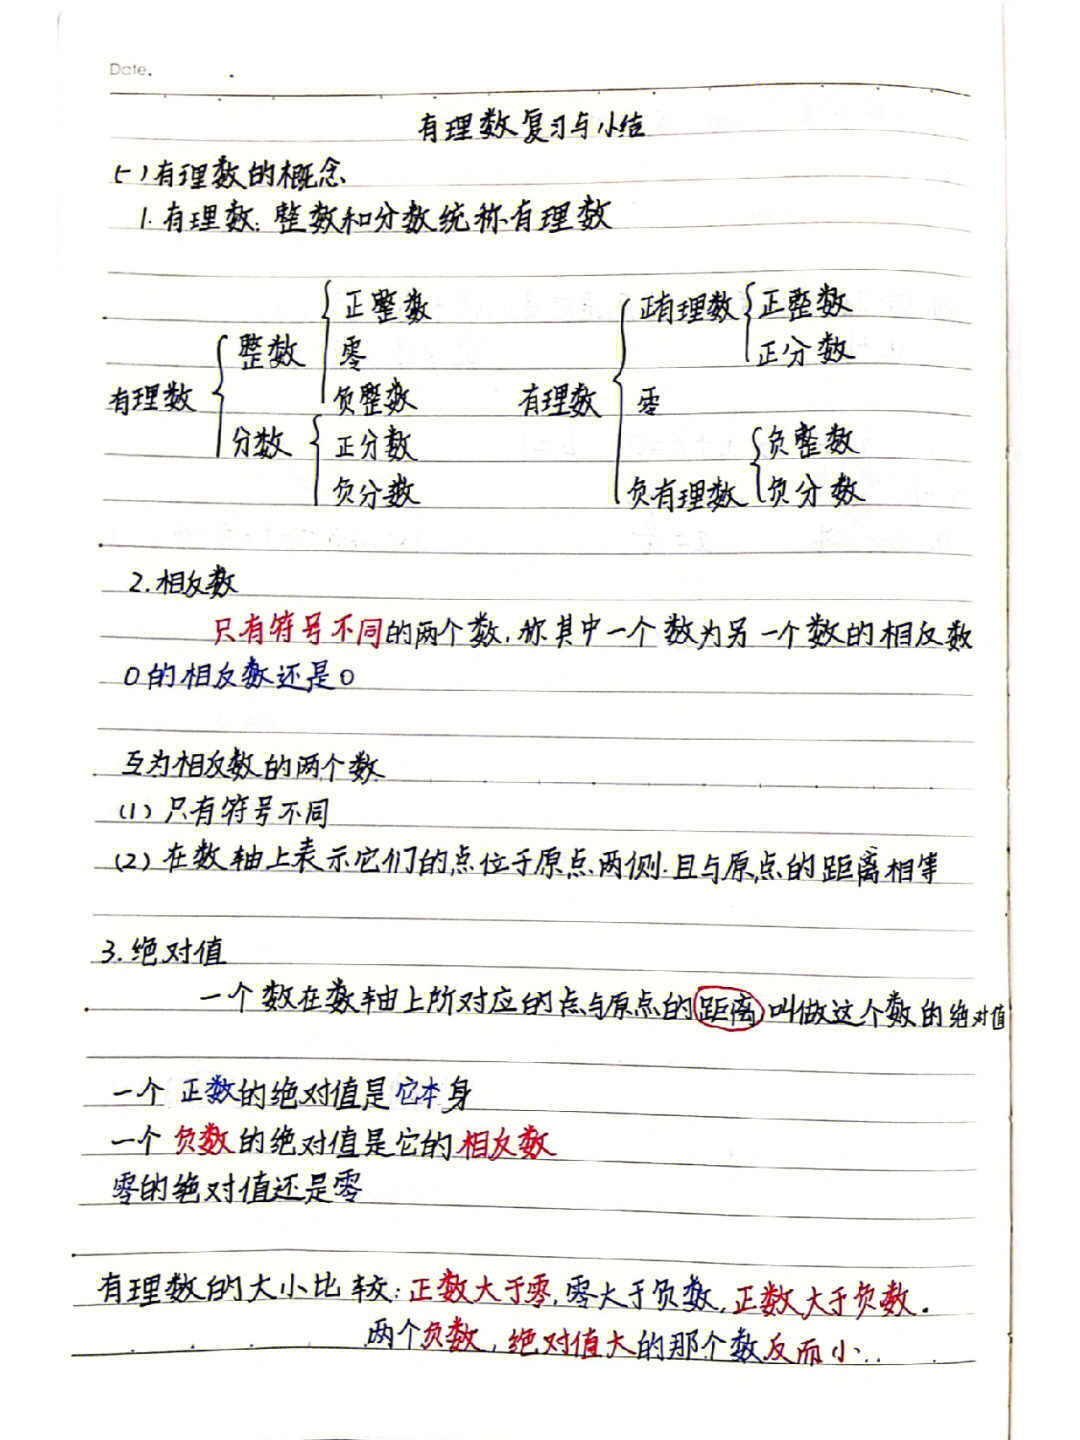 Date.
有理数复习与小结
(一)有理数的概念
1.有理数:整数和分数统称有理数
正整数 正有理数 正整数
整数 零 正分数
有理数 负整数 有理数 零
分数 正分数 负整数
负分数 负有理数 负分数
2.相反数
只有符号不同的两个数,称其中一个数为另一个数的相反数
0的相反数还是0
互为相反数的两个数
(1)只有符号不同
(2)在数轴上表示它们的点位于原点两侧.且与原点的距离相等
3.绝对值
一个数在数轴上所对应的点与原点的距离叫做这个数的绝对值
一个正数的绝对值是它本身
一个负数的绝对值是它的相反数
零的绝对值还是零
有理数的大小比较:正数大于零,零大于负数,正数大于负数.
两个负数,绝对值大的那个数反而小..